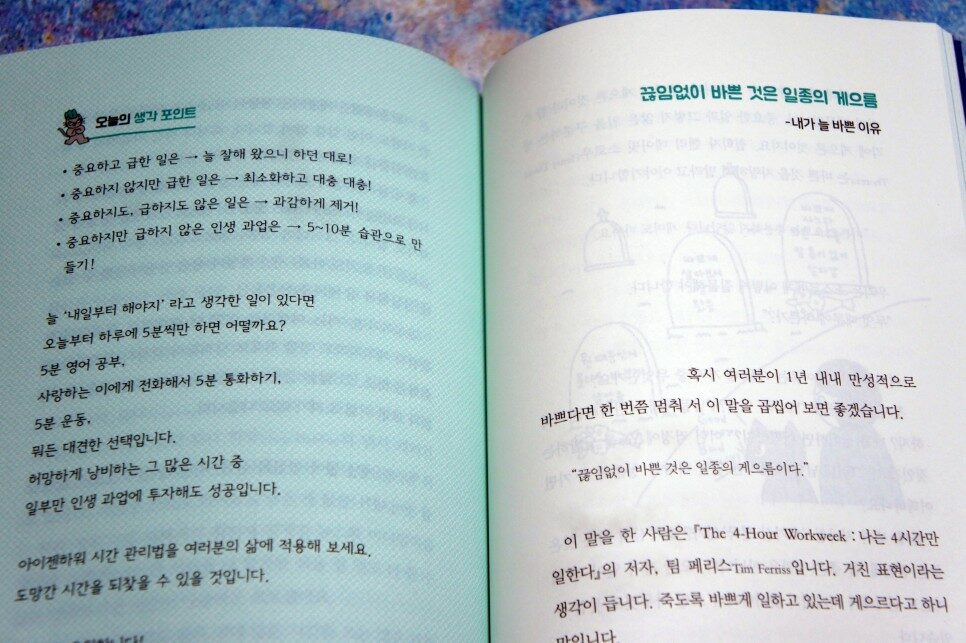 오늘의 생각 포인트
• 중요하고 급한 일은 → 늘 잘해 왔으니 하던 대로!
• 중요하지 않지만 급한 일은 → 최소화하고 대충 대충!
• 중요하지도, 급하지도 않은 일은 → 과감하게 제거!
• 중요하지만 급하지 않은 인생 과업은 → 5~10분 습관으로 만
들기!
늘 ‘내일부터 해야지’ 라고 생각한 일이 있다면
오늘부터 하루에 5분씩만 하면 어떨까요?
5분 영어 공부,
사랑하는 이에게 전화해서 5분 통화하기,
5분 운동,
뭐든 대견한 선택입니다.
허망하게 낭비하는 그 많은 시간 중
일부만 인생 과업에 투자해도 성공입니다.
아이젠하워 시간 관리법을 여러분의 삶에 적용해 보세요.
도망간 시간을 되찾을 수 있을 것입니다.
끊임없이 바쁜 것은 일종의 게으름
-내가 늘 바쁜 이유
혹시 여러분이 1년 내내 만성적으로
바쁘다면 한 번쯤 멈춰 서 이 말을 곱씹어 보면 좋겠습니다.
“끊임없이 바쁜 것은 일종의 게으름이다.”
이 말을 한 사람은 『The 4-Hour Workweek : 나는 4시간만
일한다』의 저자, 팀 페리스Tim Ferriss입니다. 거친 표현이라는
생각이 듭니다. 죽도록 바쁘게 일하고 있는데 게으르다고 하니
말입니다.